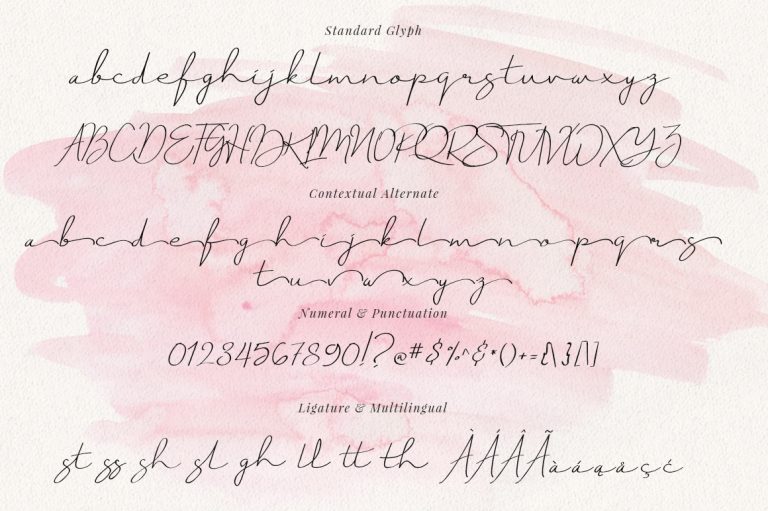 Standard Glyph
abcdefghijklmnopqrstuvwxyz
ABCDEFGHIJKLMNOPQRSTUVWXYZ
Contextual Alternate
a b c d e f g h i j k l m n o p q r s
t u v w x y z
Numeral & Punctuation
01234567890!?@#$%^&*()+={\}[\]
Ligature & Multilingual
st ss sh sl gh ll tt th ÀÁÂÃàáąåçć